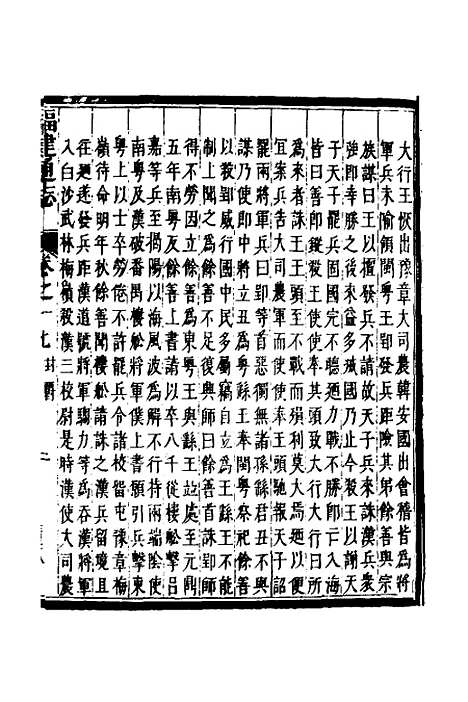 大行王恢出豫章大司農韓安國出會稽皆爲將
軍兵未喻領閩粤王郢發兵距險其弟餘善與宗
族謀曰王以擅發兵不請故天子兵來誅漢兵衆
彊即幸勝之後來益多滅國乃止今殺王以謝天
子天子罷兵固國完不聽廼力戰不勝即亡入海
皆曰善即鏦殺王使使奉其頭致大行大行曰所
爲來者誅王王頭至不戰而殞利莫大焉廼以便
宜案兵告大司農軍而使使奉王頭馳報天子詔
罷兩將軍兵曰郢等首惡獨無諸孫繇君丑不與
謀乃使郎中將立丑爲粤繇王奉閩粤祭祀餘善
以殺郢威行國中民多屬竊自立爲王繇王不能
制上聞之爲餘善不足復興師曰餘善首誅郢師
得不勞因立餘善爲東粤王與繇王並處至元鼎
五年南粤反餘善上書請以卒八千從樓船擊呂
嘉等兵至揭陽以海風波爲解不行持兩端陰使
南粤及漢破番禺樓船將軍僕上書願引兵擊東
粤上以士卒勞倦不許罷兵令諸校留屯豫章梅
嶺待命明年秋餘善聞樓船請誅之漢兵留境且
往廼遂發兵距漢道號將軍騶力等爲吞漢將軍
入白沙武林梅嶺殺漢三校尉是時漢使大司農
福建通志 卷之十九 封爵 二